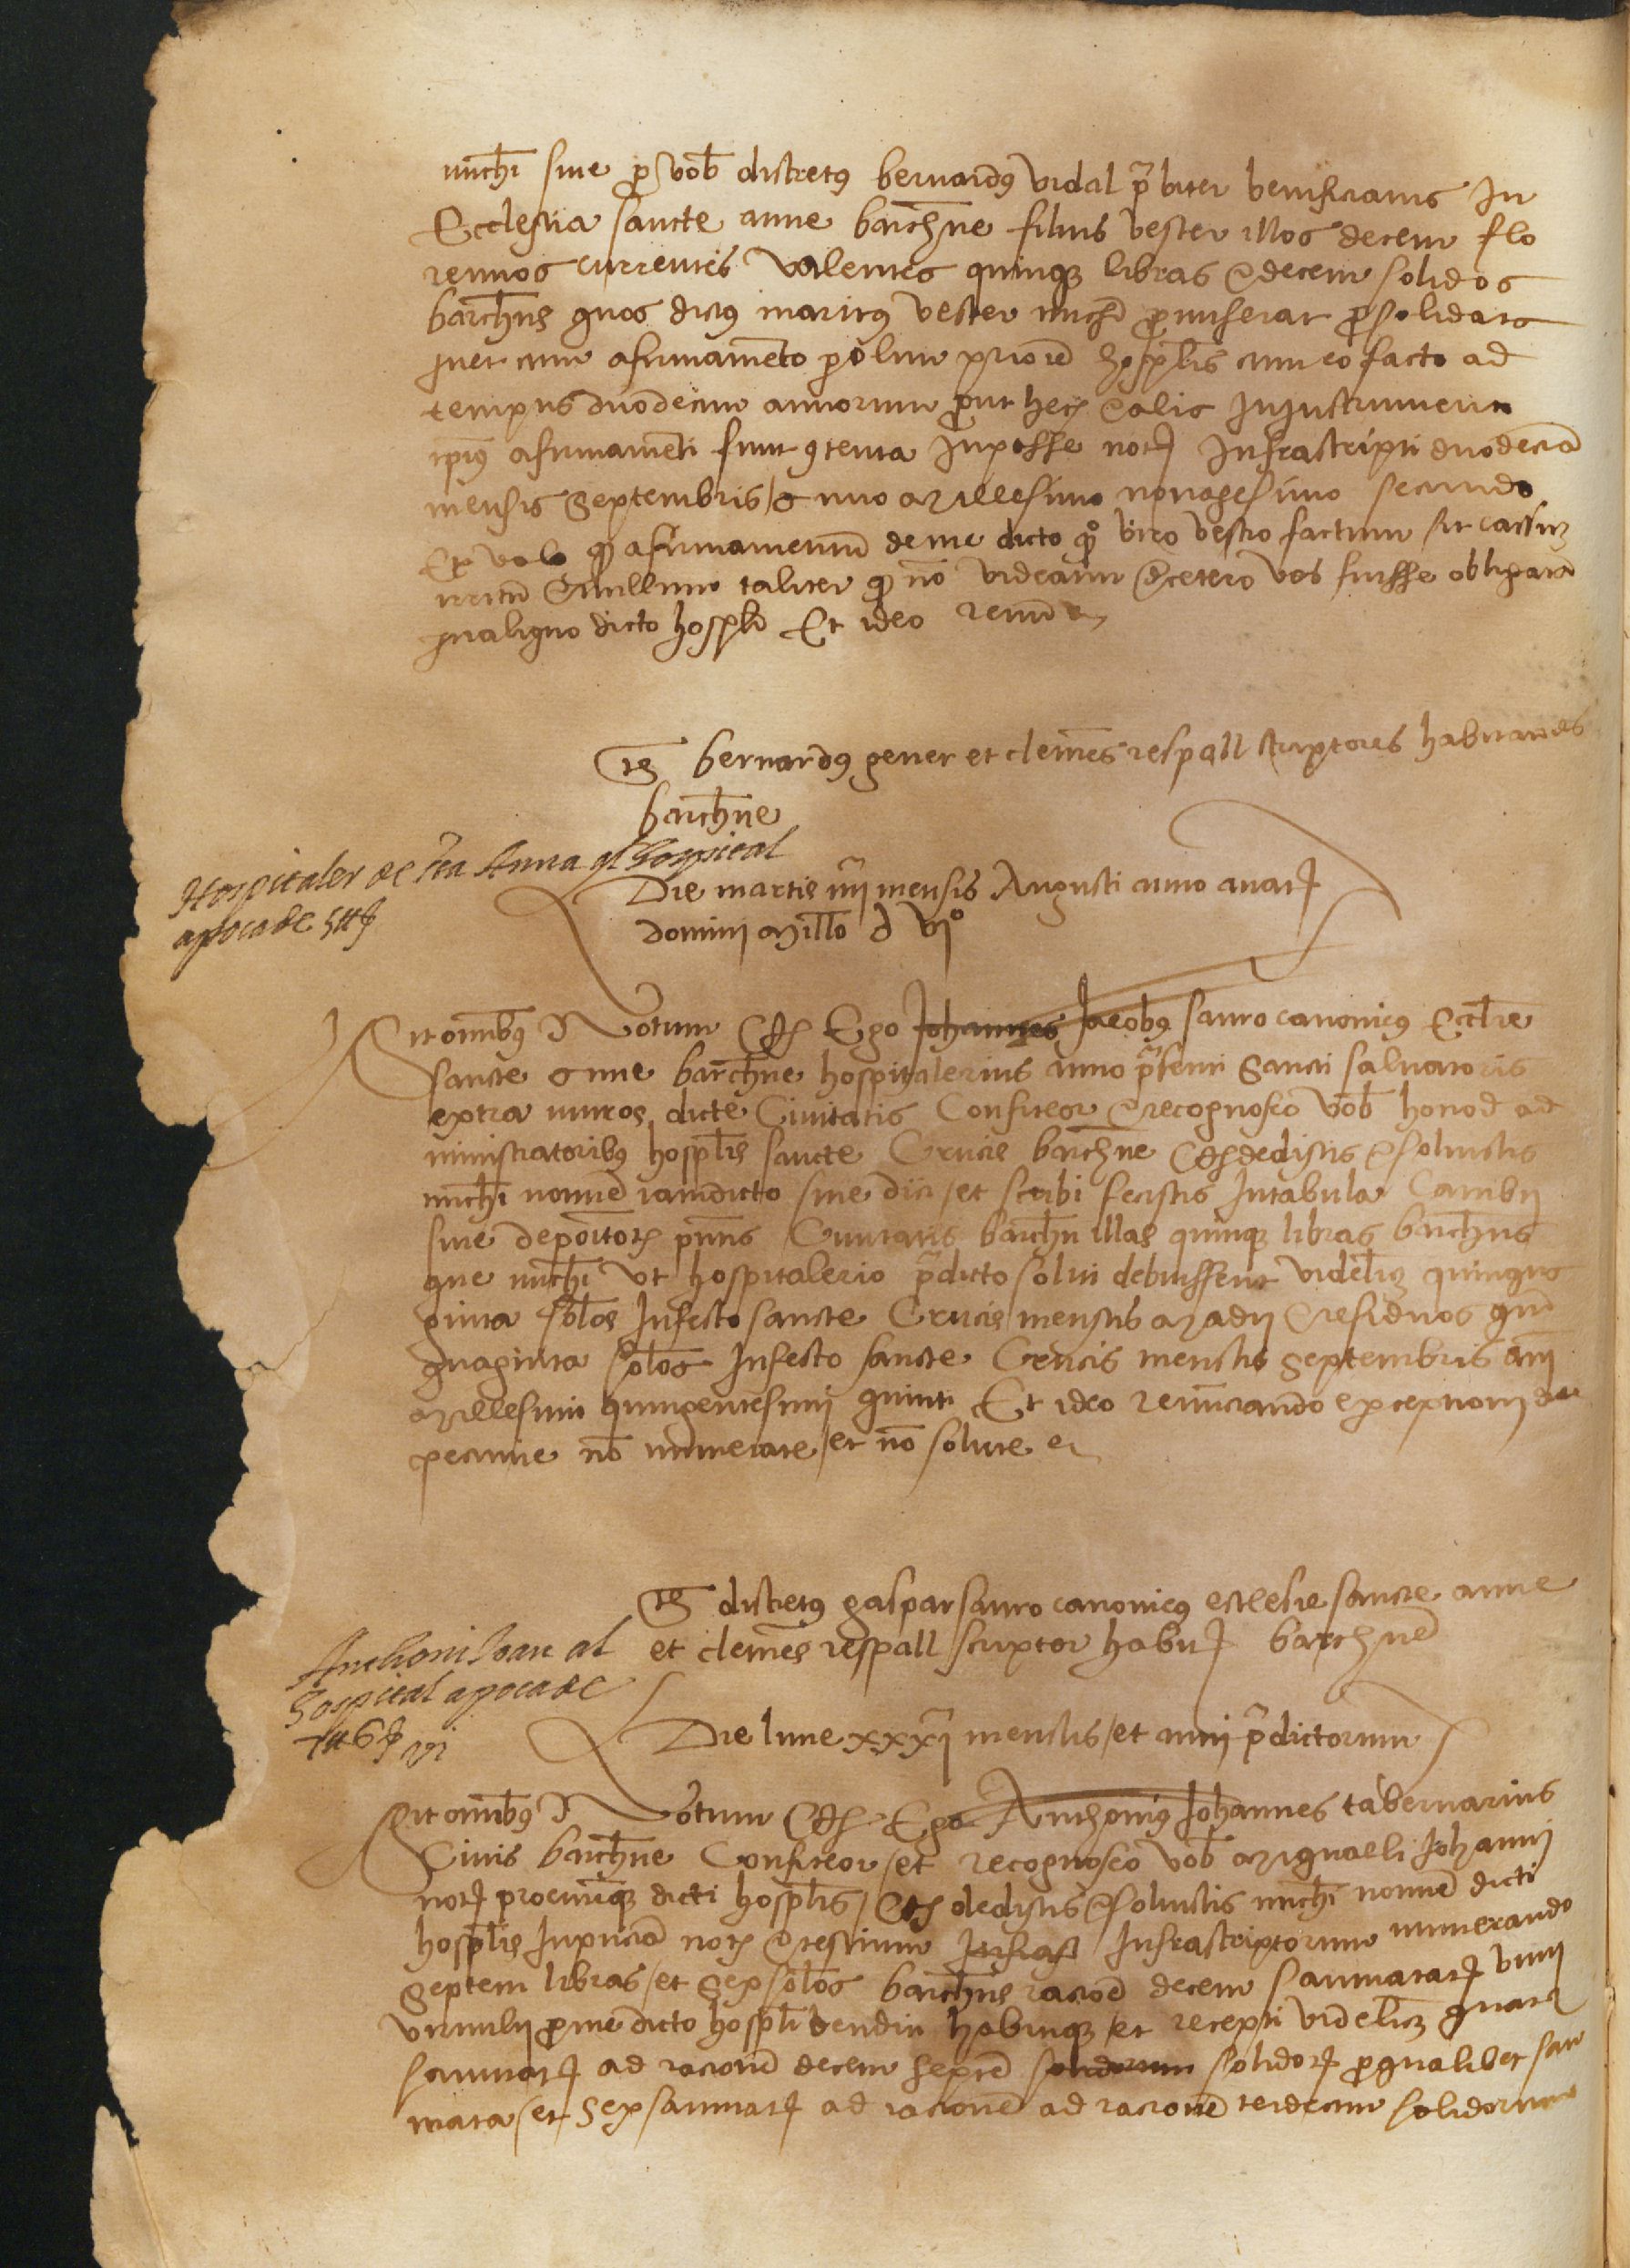 michi sive pro vob discretus bernardus vidal prbiter benificiatus In
Ecclesia sancte anne barchne filius vester illos decem flo
renos currentes valentes quinque libras & decem solidos
barchns quos dictus maritus vester michi promiserat pro solidate
cum afirmamento per olim priore hosplis cum eo facto ad
tempus duodecim annorum prout hec & alia In Instrumento
ipius afirmamenti sunt contenta In posse notj Infrascripti duodecima
mensis Septembris / Anno Millesimo nonagesimo secundo
Et volo quod afirmamentum de me dicto quo viro vestro factum sit cassum
irritum & nullum taliter quod non videamini de cetero vos fuisse obligata
In aliquo dicto hospli Et ideo renun &
Ts bernardus gener et clemens respall scriptores habitantes
barchne
Hospitaler de sta Anna al hospital
apoca de 5 ll s
Die martis iiij mensis Augusti anno a natj
domini Millo d vjo
Sit omnibus Notum Quod Ego Johannes Jacobus sauro canonicus Ecclie
sancte Anne barchne hospitalerius anno presenti Sancti salvatoris
extra muros dicte Civitatis Confiteor & recognosco vob honod ad
ministratoribus hosplis sancte Crucis barchne Quod dedistis & solvistis
michi nomine iamdicto sive dici / et scribi fecistis In tabula Cambij
sive depoitor pntis Civitatis barchn illas quinque libras barchns
que michi ut hospitalerio predicto solui debuissent videlicet quinqua
ginta solos In festo sancte Crucis mensis Madij & residuos quin
quaginta solos In festo sancte Crucis mensis Septembris anni
Millesimi quingentesimi quinti Et ideo renunciando exceptioni
pecunie non numerate / et non solute &
Ts discretus gaspar sauro canonicus ecclesie sancte anne
et clemens respall scriptor habitj barchne
Anthoni Joan al
hospital apoca de
7 ll 6 s
Die lune xxxj mensis / et anni predictorum
Sit omnibus Notum Quod Ego Anthonius Johannes tabernarius
Civis barchne Confiteor / et recognosco vob Miquaeli Johanni
notj procuriqz dicti hosplis / Quod dedistis & solvistis michi nomine dicti
hosplis In pncia notj & testium Infrast Infrascriptorum numerando
Septem libras / et Sex solos barchns racione decem saumatarj vini
vermilij per me dicto hospli vendin habitiqz / et recepti videlicet quatuor
saumatj ad racione decem septem solidorum solidorj pro qualibet sau
mata / et Sex saumatj ad racione ad racione terdecim solidorum